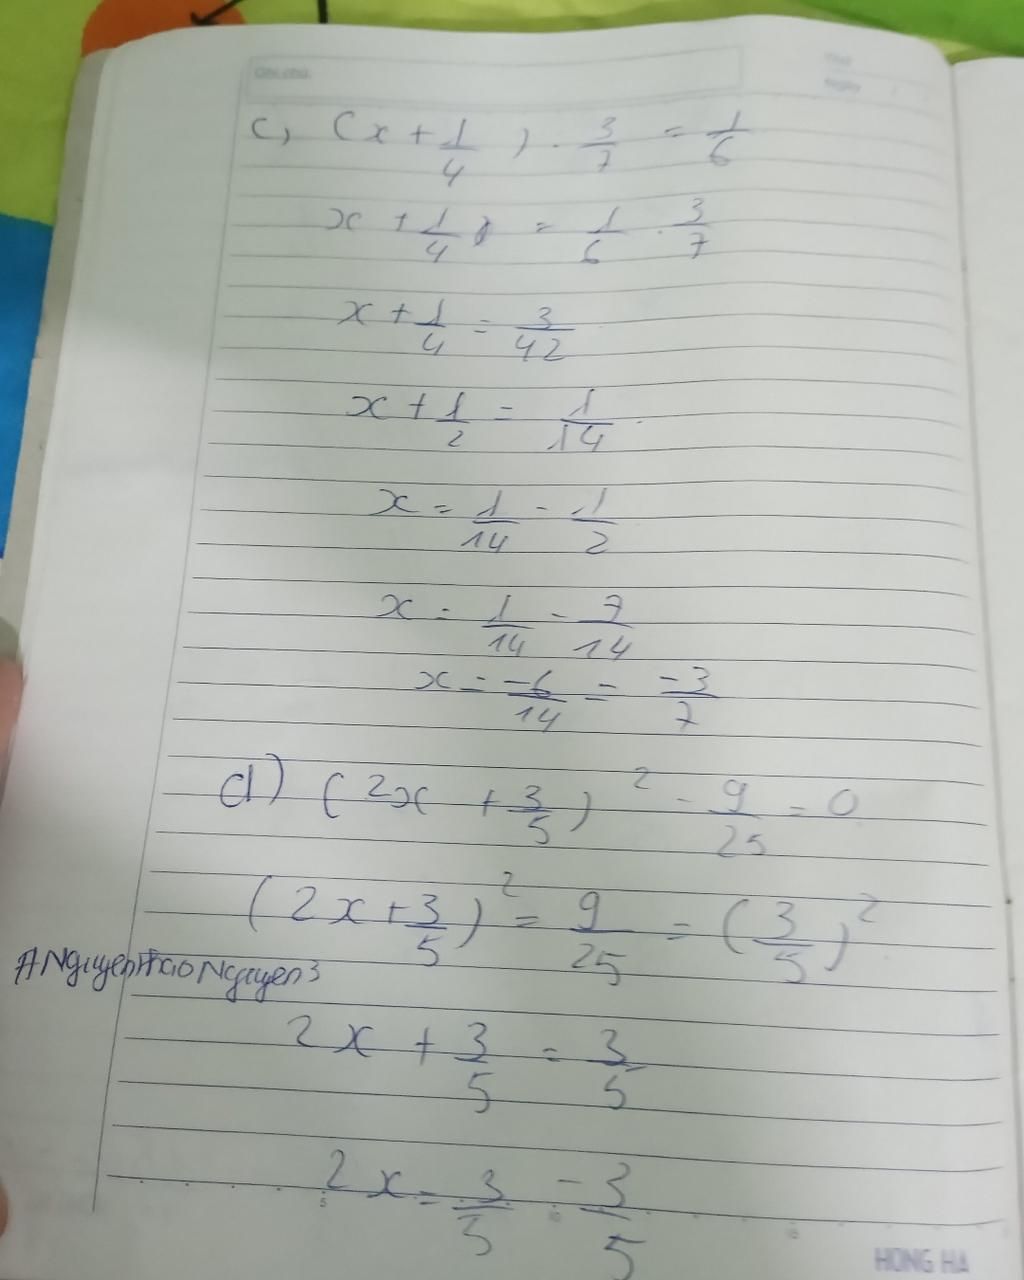 Ghi chú:
Thứ
Ngày
c, (x + 1/4) . 3/7 = 1/6
x + 1/4 = 1/6 . 3/7
x + 1/4 = 3/42
x + 1/2 = 1/14
x = 1/14 - 1/2
x = 1/14 - 7/14
x = -6/14 = -3/7
d) (2x + 3/5)² - 9/25 = 0
(2x + 3/5)² = 9/25 = (3/5)²
ANguyenHaoNguyen3
2x + 3/5 = 3/5
2x = 3/5 - 3/5
5 10 15
HONG HA